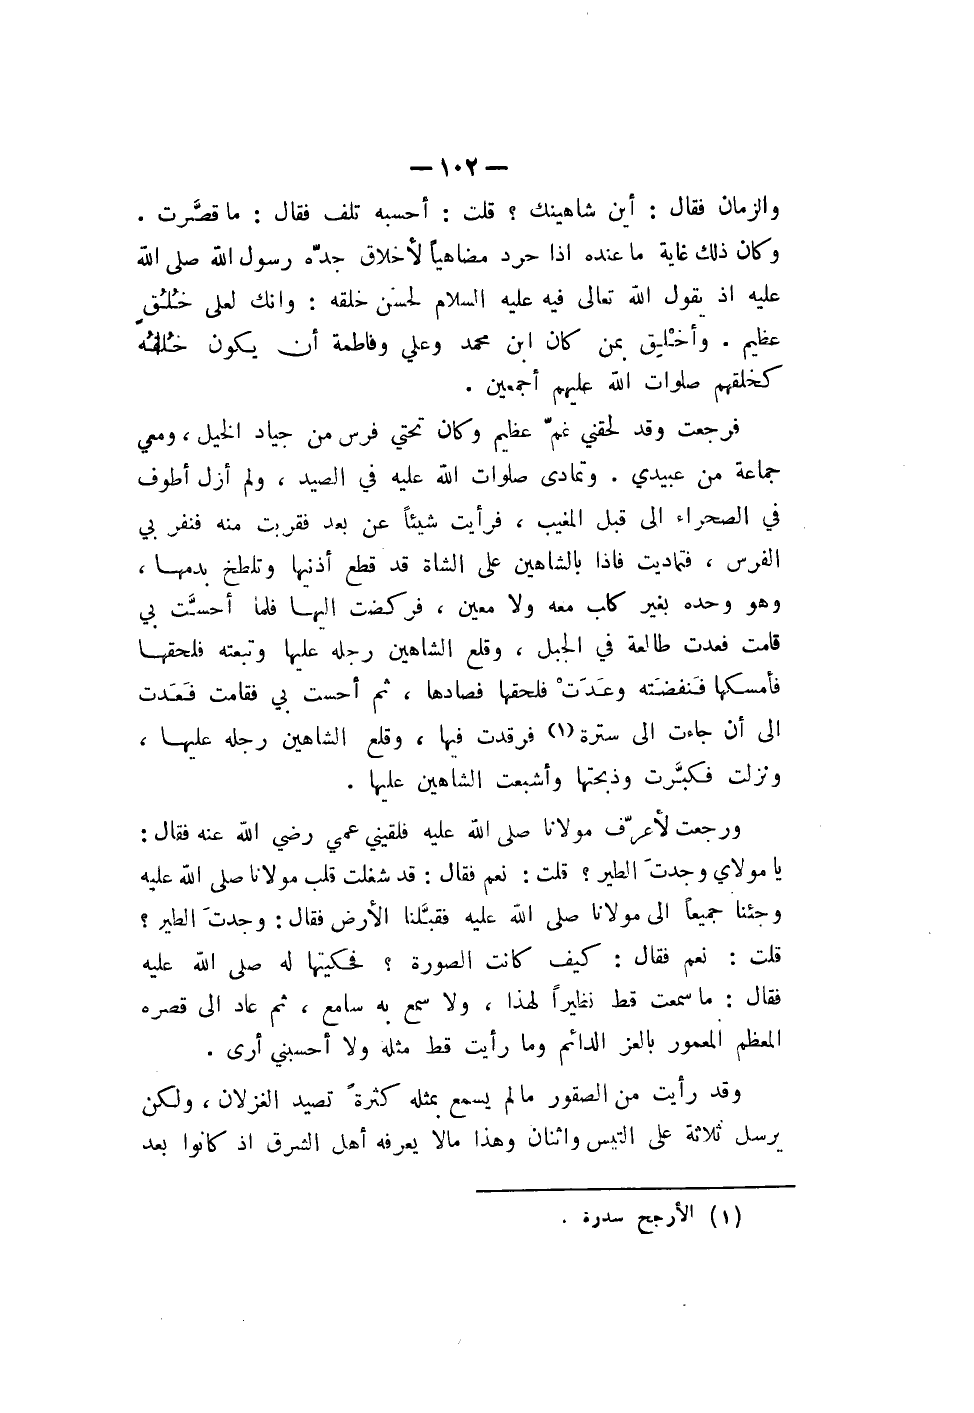 — ١٠٢ —
والزمان فقال : أين شاهينك ؟ قلت : أحسبه تلف فقال : ما قصَّرت .
وكان ذلك غاية ما عنده اذا حرد مضاهياً لأخلاق جدّه رسول الله صلى الله
عليه اذ يقول الله تعالى فيه عليه السلام لحسن خلقه : وانك لعلى خُلُقٍ
عظيم . وأخْلِق بمن كان ابن محمد وعلي وفاطمة أن يكون خُلقُه
كخلقهم صلوات الله عليهم أجمعين .
فرجعت وقد لحقني غمّ عظيم وكان تحتي فرس من جياد الخيل ، ومعي
جماعة من عبيدي . وتمادى صلوات الله عليه في الصيد ، ولم أزل أطوف
في الصحراء الى قبل المغيب ، فرأيت شيئاً عن بعد فقربت منه فنفر بي
الفرس ، فتماديت فاذا بالشاهين على الشاة قد قطع أذنيها وتلطخ بدمها ،
وهو وحده بغير كلب معه ولا معين ، فركضت اليها فلما أحسَّت بي
قامت فعدت طالعة في الجبل ، وقلع الشاهين رجله عليها وتبعته فلحقها
فأمسكها فَنفضَته وعَدَتْ فلحقها فصادها ، ثم أحست بي فقامت فَعَدت
الى أن جاءت الى سترة (١) فرقدت فيها ، وقلع الشاهين رجله عليها ،
ونزلت فكبَّرت وذبحتها وأشبعت الشاهين عليها .
ورجعت لأعرّف مولانا صلى الله عليه فلقيني عمي رضي الله عنه فقال :
يا مولاي وجدتَ الطير ؟ قلت : نعم فقال : قد شغلت قلب مولانا صلى الله عليه
وجئنا جميعاً الى مولانا صلى الله عليه فقبَّلنا الأرض فقال : وجدتَ الطير ؟
قلت : نعم فقال : كيف كانت الصورة ؟ فحكيتها له صلى الله عليه
فقال : ما سمعت قط نظيراً لهذا ، ولا سمع به سامع ، ثم عاد الى قصره
المعظم المعمور بالعز الدائم وما رأيت قط مثله ولا أحسبني أرى .
وقد رأيت من الصقور مالم يسمع بمثله كثرةً تصيد الغزلان ، ولكن
يرسل ثلاثة على التيس واثنان وهذا مالا يعرفه أهل الشرق اذ كانوا بعد
(١) الأرجح سدرة .